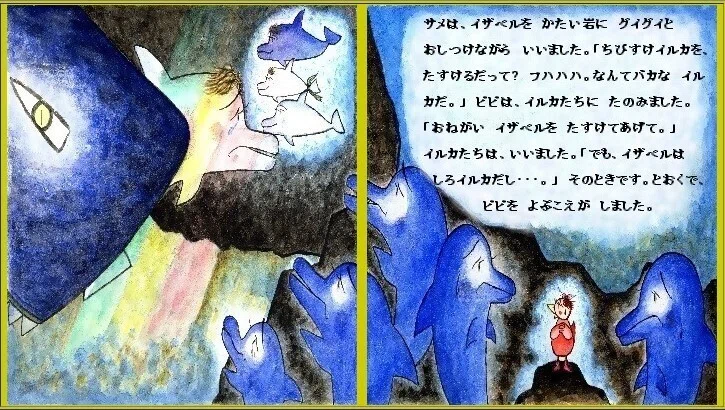 サメは、イザベルを かたい岩に グイグイと
おしつけながら いいました。「ちびすけイルカを、
たすけるだって? フハハハ。なんてバカな イル
カだ。」 ビビは、イルカたちに たのみました。
「おねがい イザベルを たすけてあげて。」
イルカたちは、いいました。「でも、イザベルは
しろイルカだし・・・。」 そのときです。とおくで、
ビビを よぶこえが しました。